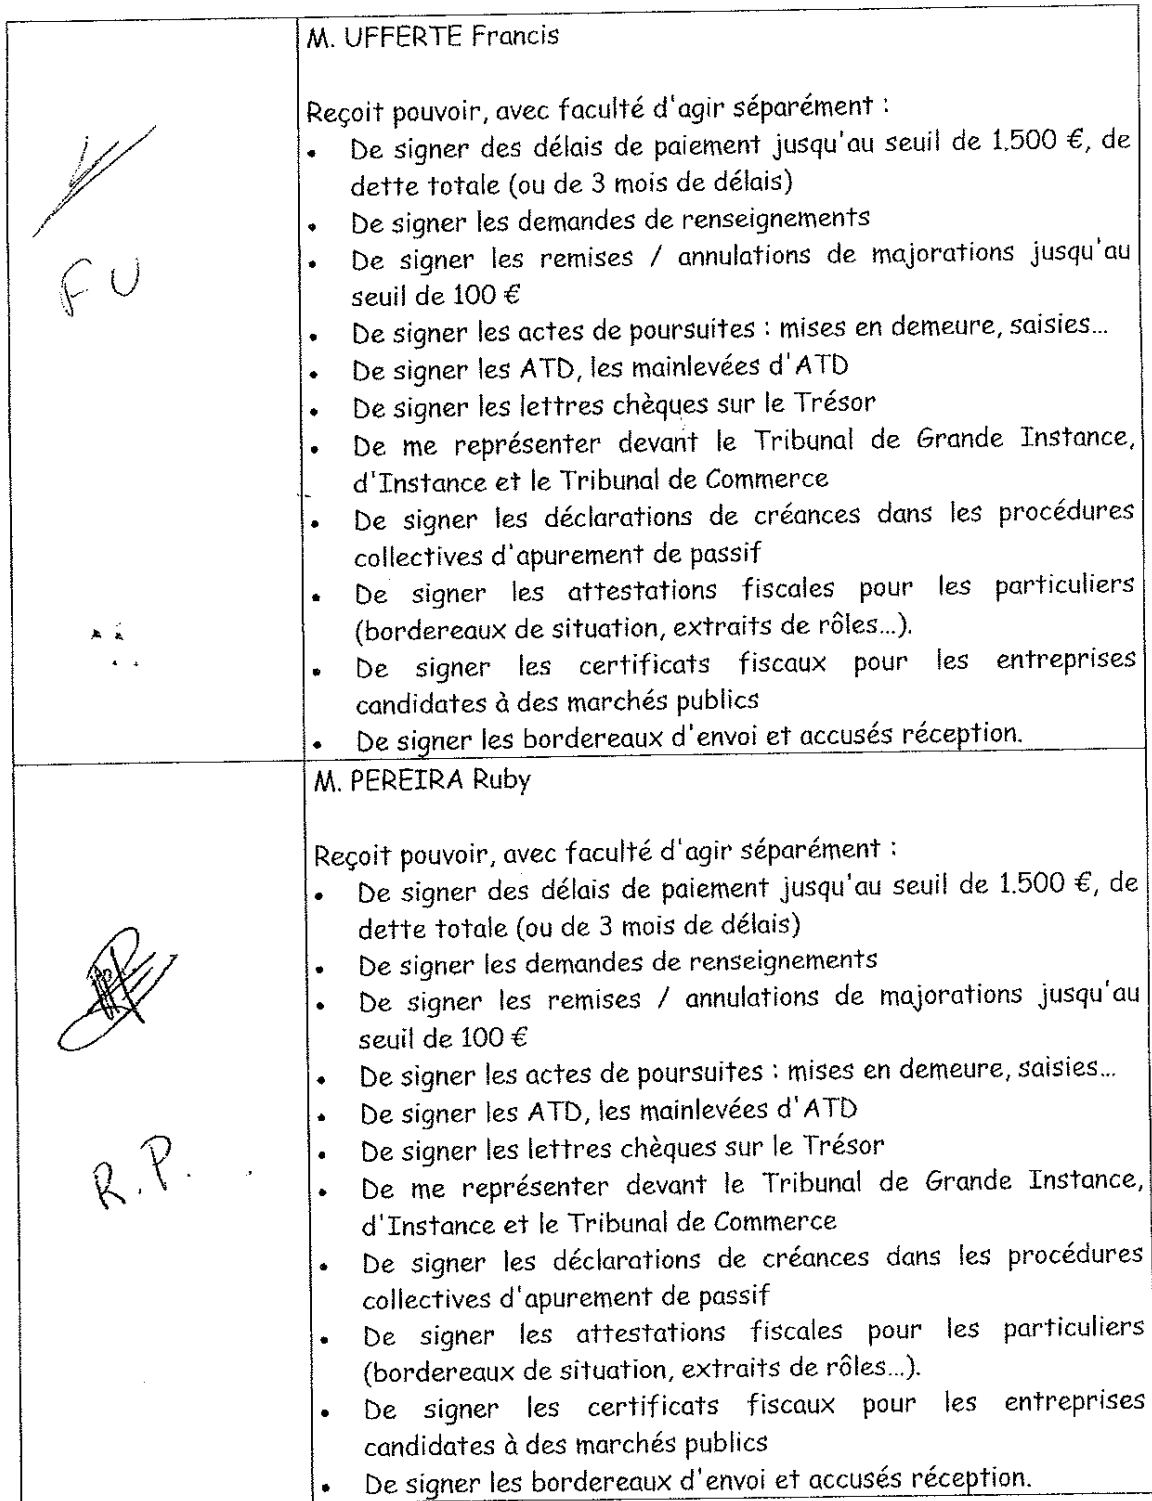 M. UFFERTE Francis
Reçoit pouvoir, avec faculté d'agir séparément :
• De signer des délais de paiement jusqu'au seuil de 1.500 €, de
dette totale (ou de 3 mois de délais)
• De signer les demandes de renseignements
• De signer les remises / annulations de majorations jusqu'au
seuil de 100 €
• De signer les actes de poursuites : mises en demeure, saisies...
• De signer les ATD, les mainlevées d'ATD
• De signer les lettres chèques sur le Trésor
• De me représenter devant le Tribunal de Grande Instance,
d'Instance et le Tribunal de Commerce
• De signer les déclarations de créances dans les procédures
collectives d'apurement de passif
• De signer les attestations fiscales pour les particuliers
(bordereaux de situation, extraits de rôles...).
• De signer les certificats fiscaux pour les entreprises
candidates à des marchés publics
• De signer les bordereaux d'envoi et accusés réception.
FU
M. PEREIRA Ruby
Reçoit pouvoir, avec faculté d'agir séparément :
• De signer des délais de paiement jusqu'au seuil de 1.500 €, de
dette totale (ou de 3 mois de délais)
• De signer les demandes de renseignements
• De signer les remises / annulations de majorations jusqu'au
seuil de 100 €
• De signer les actes de poursuites : mises en demeure, saisies...
• De signer les ATD, les mainlevées d'ATD
• De signer les lettres chèques sur le Trésor
• De me représenter devant le Tribunal de Grande Instance,
d'Instance et le Tribunal de Commerce
• De signer les déclarations de créances dans les procédures
collectives d'apurement de passif
• De signer les attestations fiscales pour les particuliers
(bordereaux de situation, extraits de rôles...).
• De signer les certificats fiscaux pour les entreprises
candidates à des marchés publics
• De signer les bordereaux d'envoi et accusés réception.
R.P.